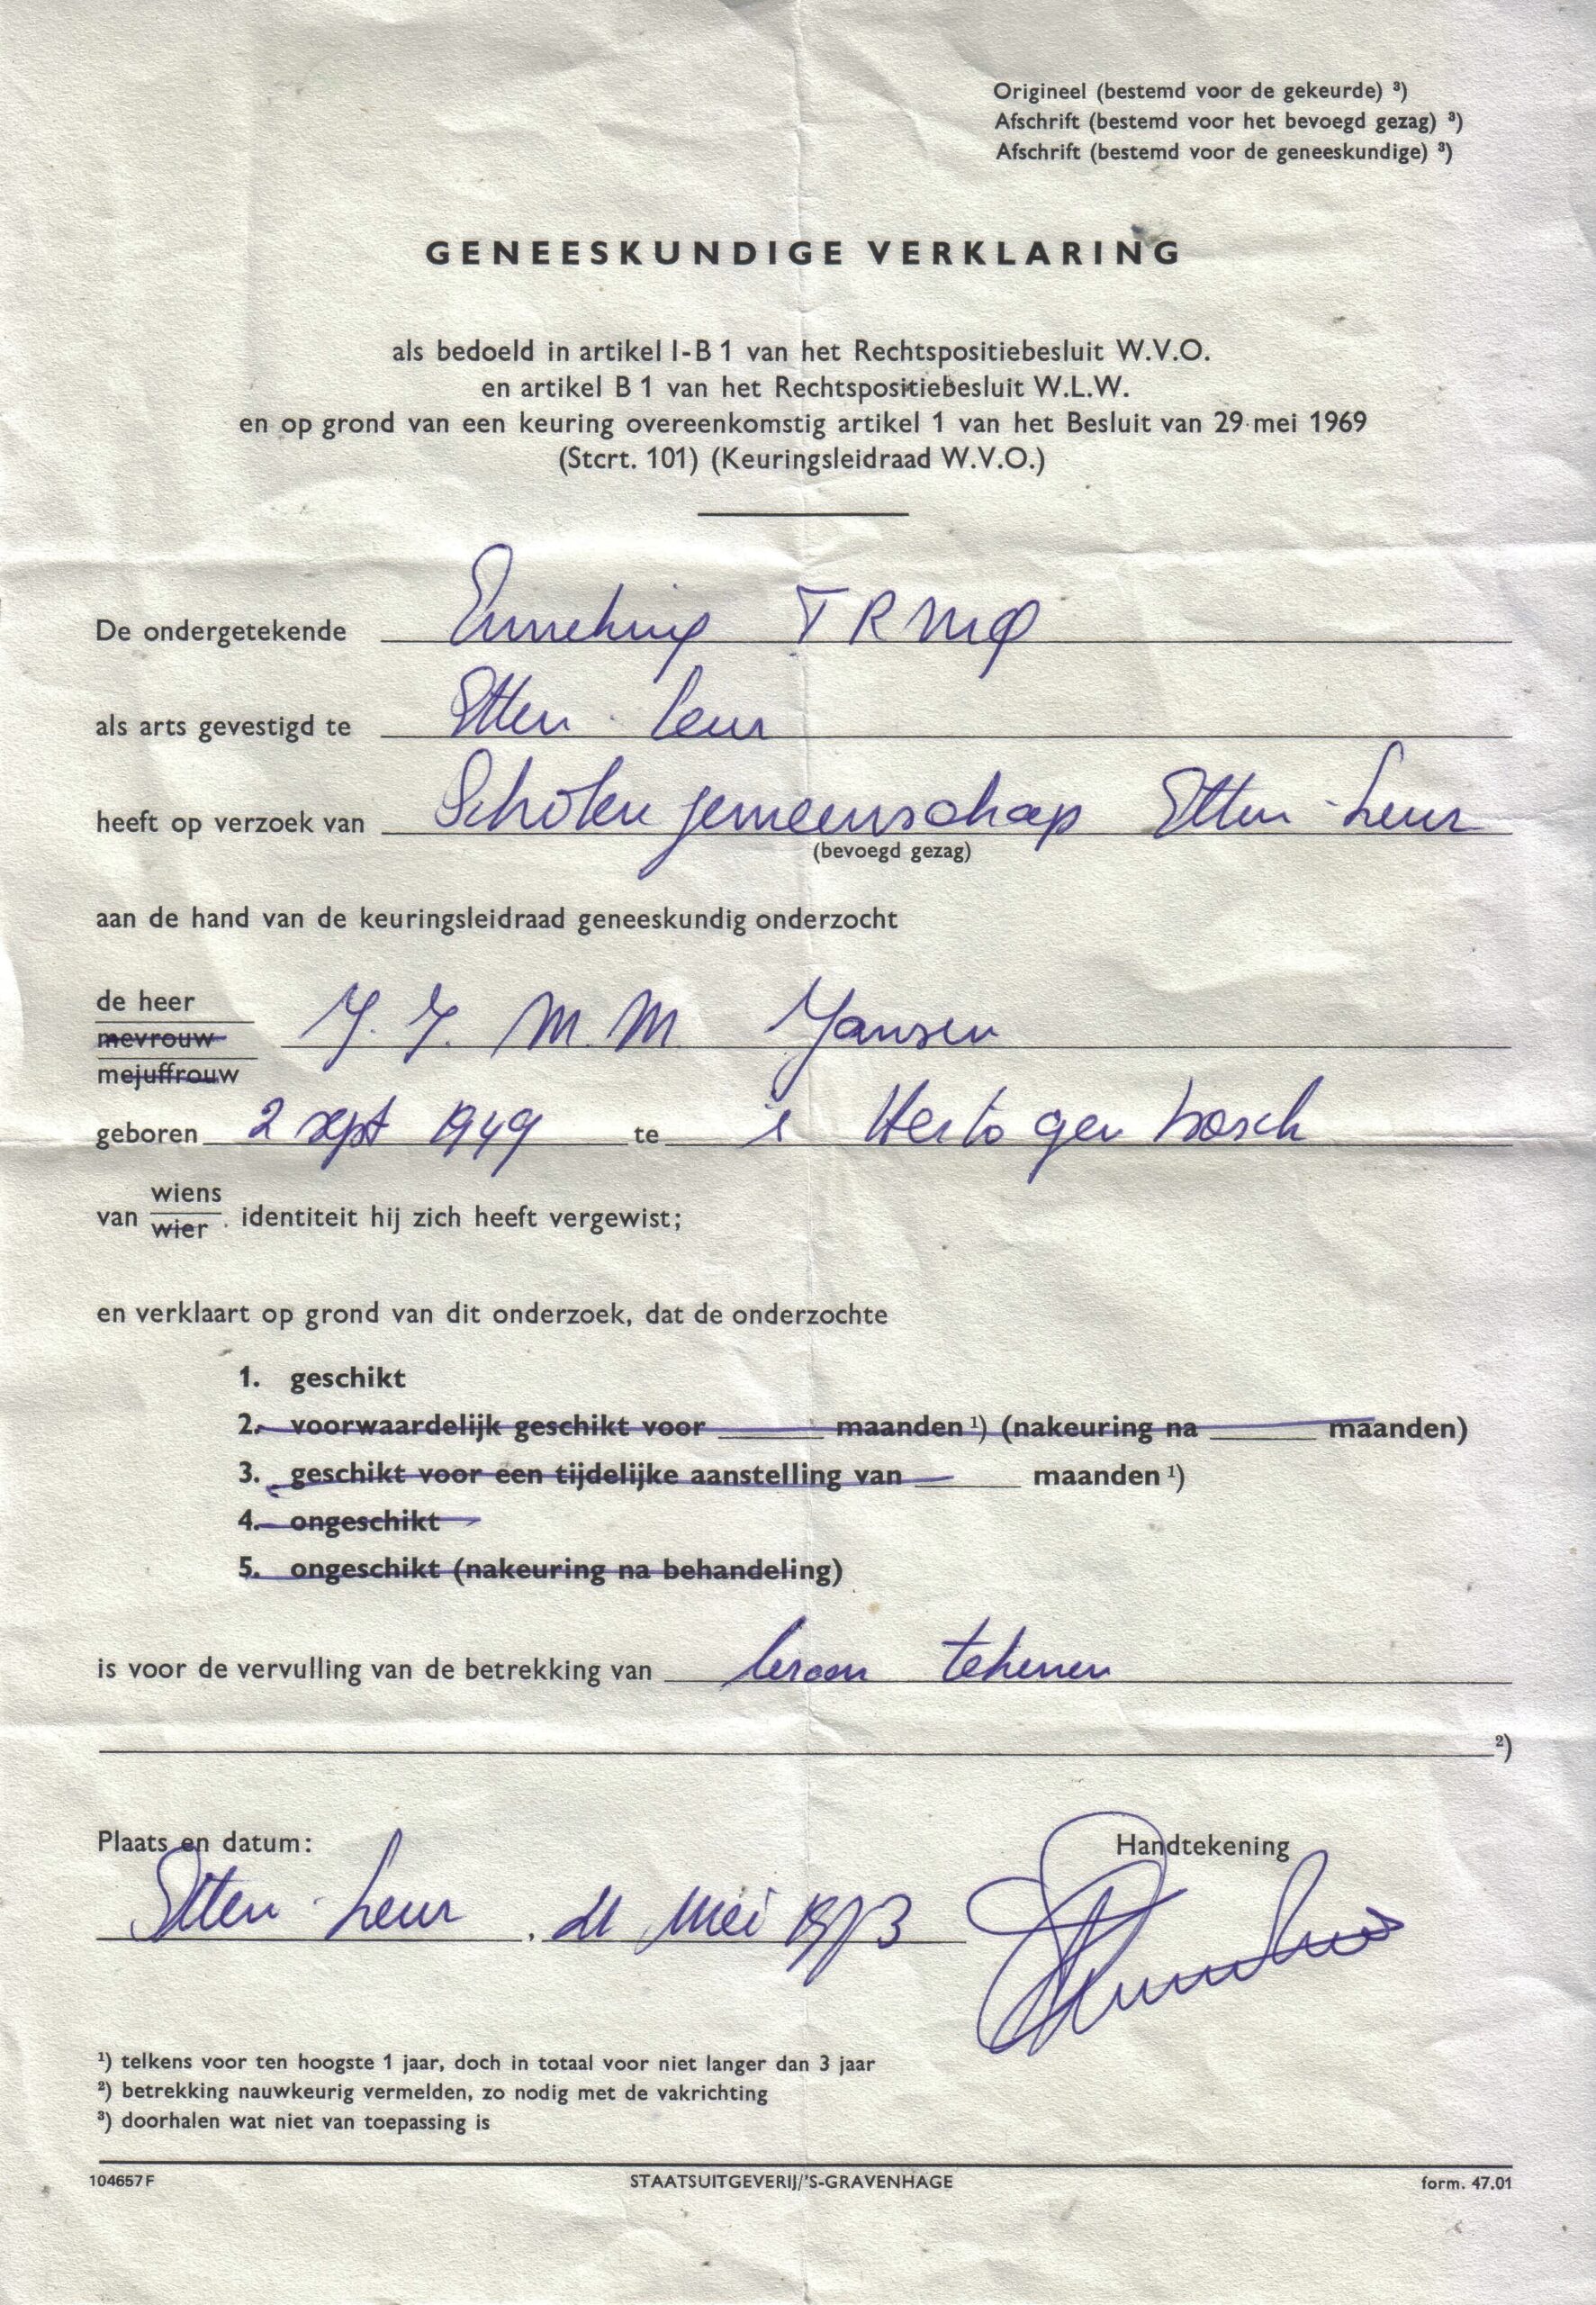 Origineel (bestemd voor de gekeurde) ³)
Afschrift (bestemd voor het bevoegd gezag) ³)
Afschrift (bestemd voor de geneeskundige) ³)
GENEESKUNDIGE VERKLARING
als bedoeld in artikel I-B 1 van het Rechtspositiebesluit W.V.O.
en artikel B 1 van het Rechtspositiebesluit W.L.W.
en op grond van een keuring overeenkomstig artikel 1 van het Besluit van 29 mei 1969
(Stcrt. 101) (Keuringsleidraad W.V.O.)
De ondergetekende
als arts gevestigd te Etten-Leur
heeft op verzoek van Scholengemeenschap Etten-Leur
(bevoegd gezag)
aan de hand van de keuringsleidraad geneeskundig onderzocht
de heer
mevrouw J. J. M. M. Jansen
mejuffrouw
geboren 2 sept 1949 te 's Hertogenbosch
wiens
van wier identiteit hij zich heeft vergewist;
en verklaart op grond van dit onderzoek, dat de onderzochte
1. geschikt
2. voorwaardelijk geschikt voor maanden ¹) (nakeuring na maanden)
3. geschikt voor een tijdelijke aanstelling van maanden ¹)
4. ongeschikt
5. ongeschikt (nakeuring na behandeling)
is voor de vervulling van de betrekking van leraar tekenen
²)
Plaats en datum: Handtekening
Etten-Leur, mei 1973
¹) telkens voor ten hoogste 1 jaar, doch in totaal voor niet langer dan 3 jaar
²) betrekking nauwkeurig vermelden, zo nodig met de vakrichting
³) doorhalen wat niet van toepassing is
104657F STAATSUITGEVERIJ/'S-GRAVENHAGE form. 47.01